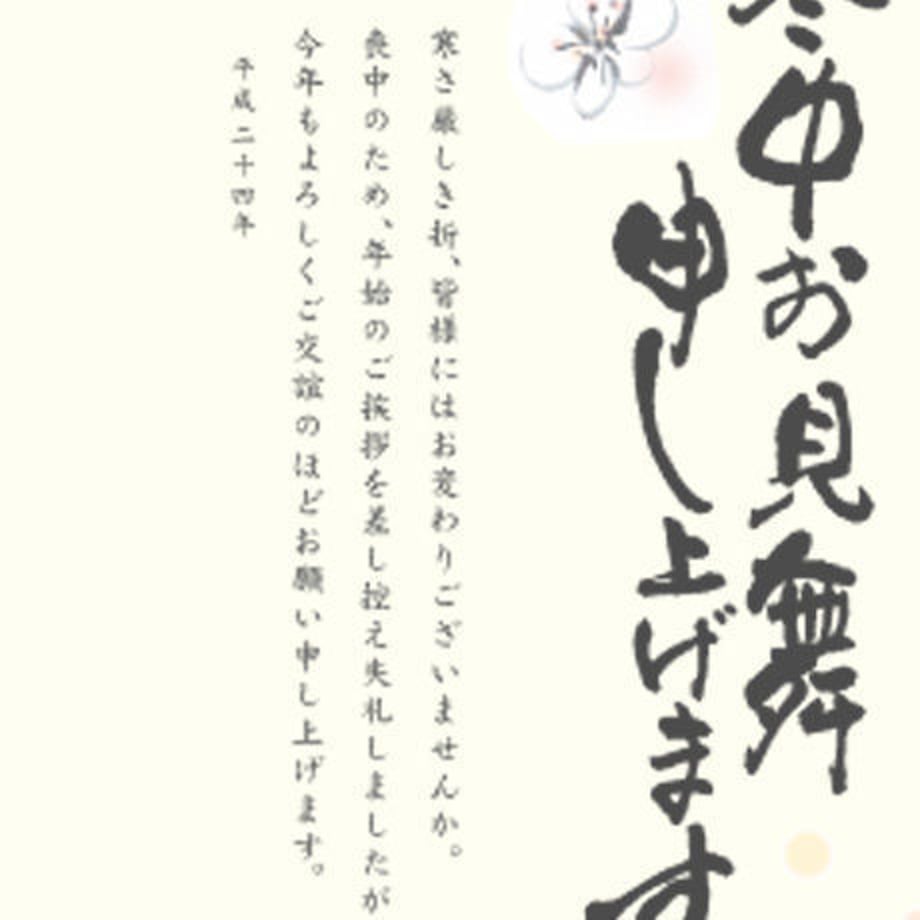 寒中お見舞
申し上げます
寒さ厳しき折、皆様にはお変わりございませんか。
喪中のため、年始のご挨拶を差し控え失礼しましたが
今年もよろしくご交誼のほどお願い申し上げます。
平成二十四年